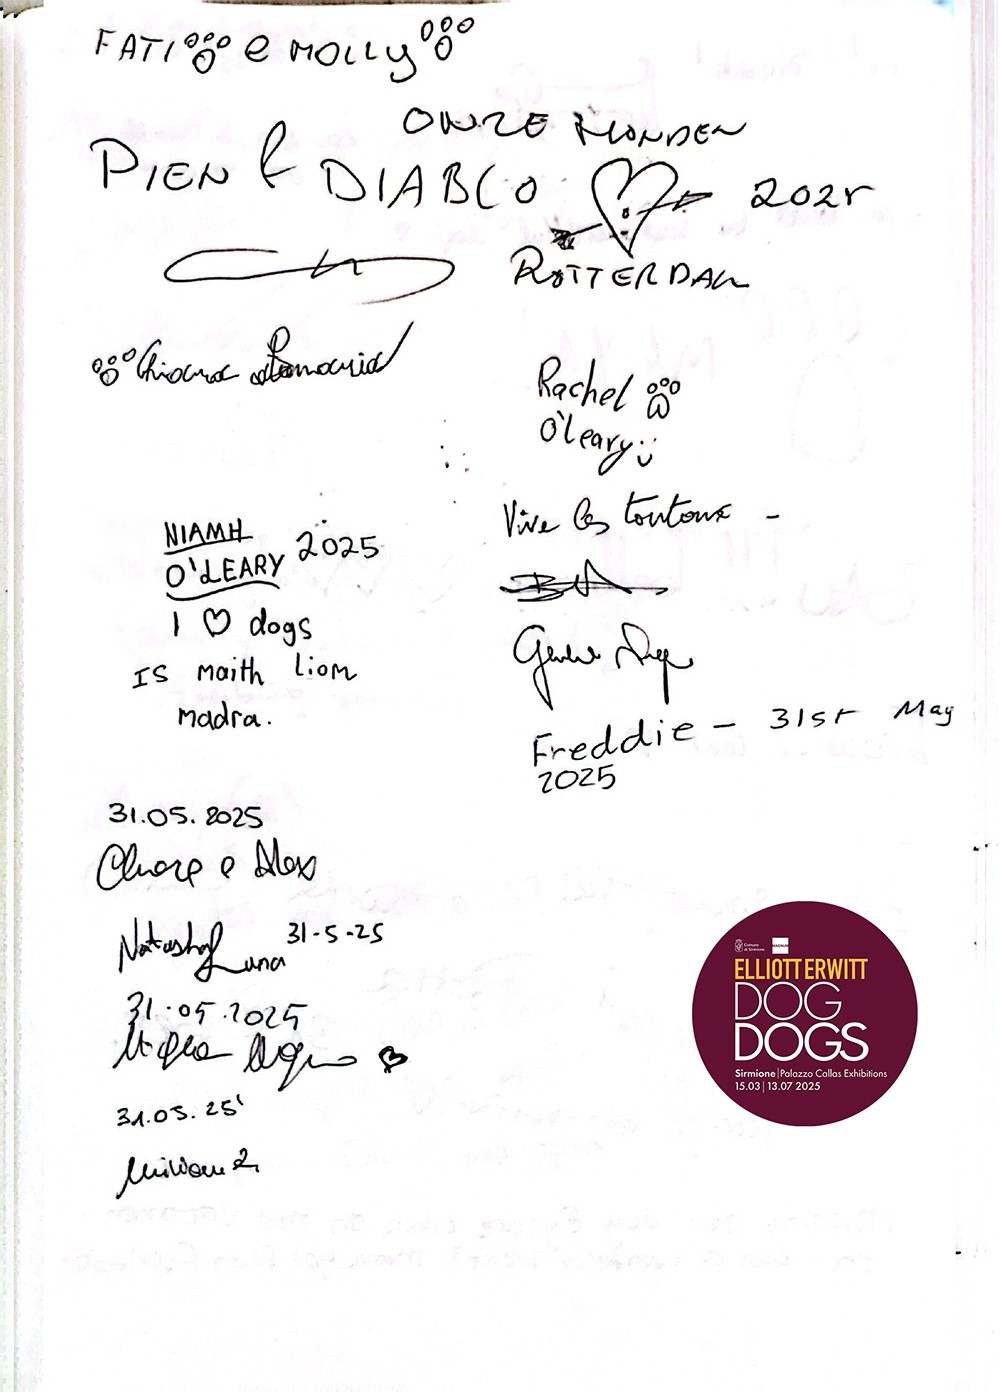 FATI e MOLLY
ONZE HONDEN
PIEN & DIABLO 2025
ROTTERDAM
Chiara
Rachel
O'leary
Vive les toutous -
NIAMH
O'LEARY 2025
I ♡ dogs
Is maith liom
madra.
Freddie - 31st May
2025
31.05.2025
e Alex
Natasha Luna 31-5-25
31.05.2025
31.05.25'
Comune
di Sirmione
MAGNUM
ELLIOTT ERWITT
DOG
DOGS
Sirmione | Palazzo Callas Exhibitions
15.03 | 13.07 2025